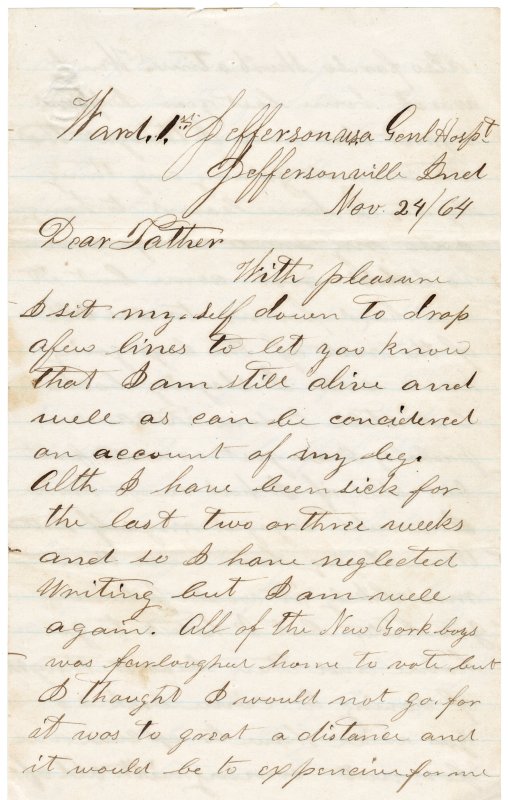 Ward. 1st Jefferson usa Genl Hospt
Jeffersonville Ind
Nov. 24/64
Dear Father
With pleasure
I sit my self down to drop
afew lines to let you know
that I am still alive and
well as can be concidered
on account of my leg.
Alth I have been sick for
the last two or three weeks
and so I have neglected
Writing but I am well
again. All of the New York boys
was fourloughed home to vote but
I thought I would not go. for
it was to great a distance and
it would be to expencive for me